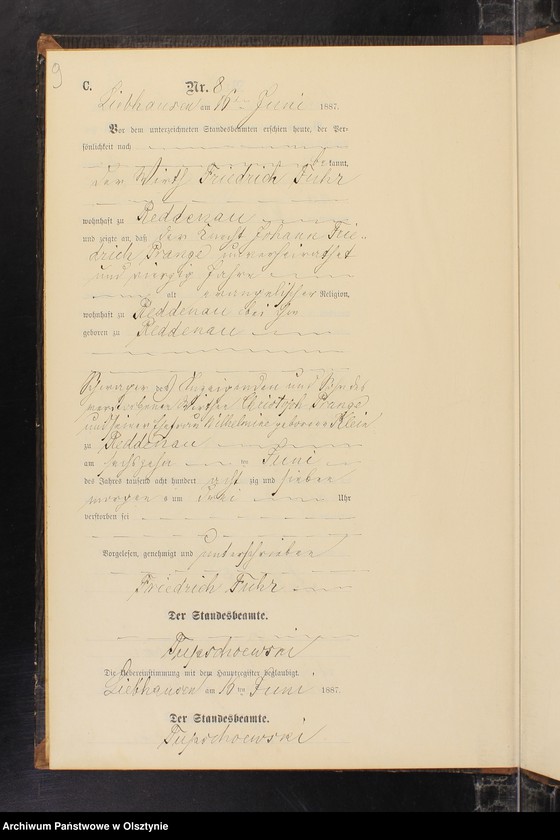 9
C.
Nr. 8
Liebhausen am 16ten Juni 1887.
Vor dem unterzeichneten Standesbeamten erschien heute, der Per-
sönlichkeit nach
kannt,
der Wirth Friedrich Fuhr
wohnhaft zu Reddenau
und zeigte an, daß der Knecht Johann Frie-
drich Prange, unverheirathet
und vierzig Jahre
alt evangelischer Religion,
wohnhaft zu Reddenau bei ihm
geboren zu Reddenau
Schwager des Anzeigenden und Sohn des
verstorbenen Wirthen Christoph Prange
und seiner Ehefrau Wilhelmine geborenen Klein
zu Reddenau
am sechszehn ten Juni
des Jahres tausend acht hundert acht zig und sieben
morgens um drei Uhr
verstorben sei
Vorgelesen, genehmigt und unterschrieben
Friedrich Fuhr
Der Standesbeamte.
Die Uebereinstimmung mit dem Hauptregister beglaubigt.
Liebhausen am 16ten Juni 1887.
Der Standesbeamte.
Archiwum Państwowe w Olsztynie